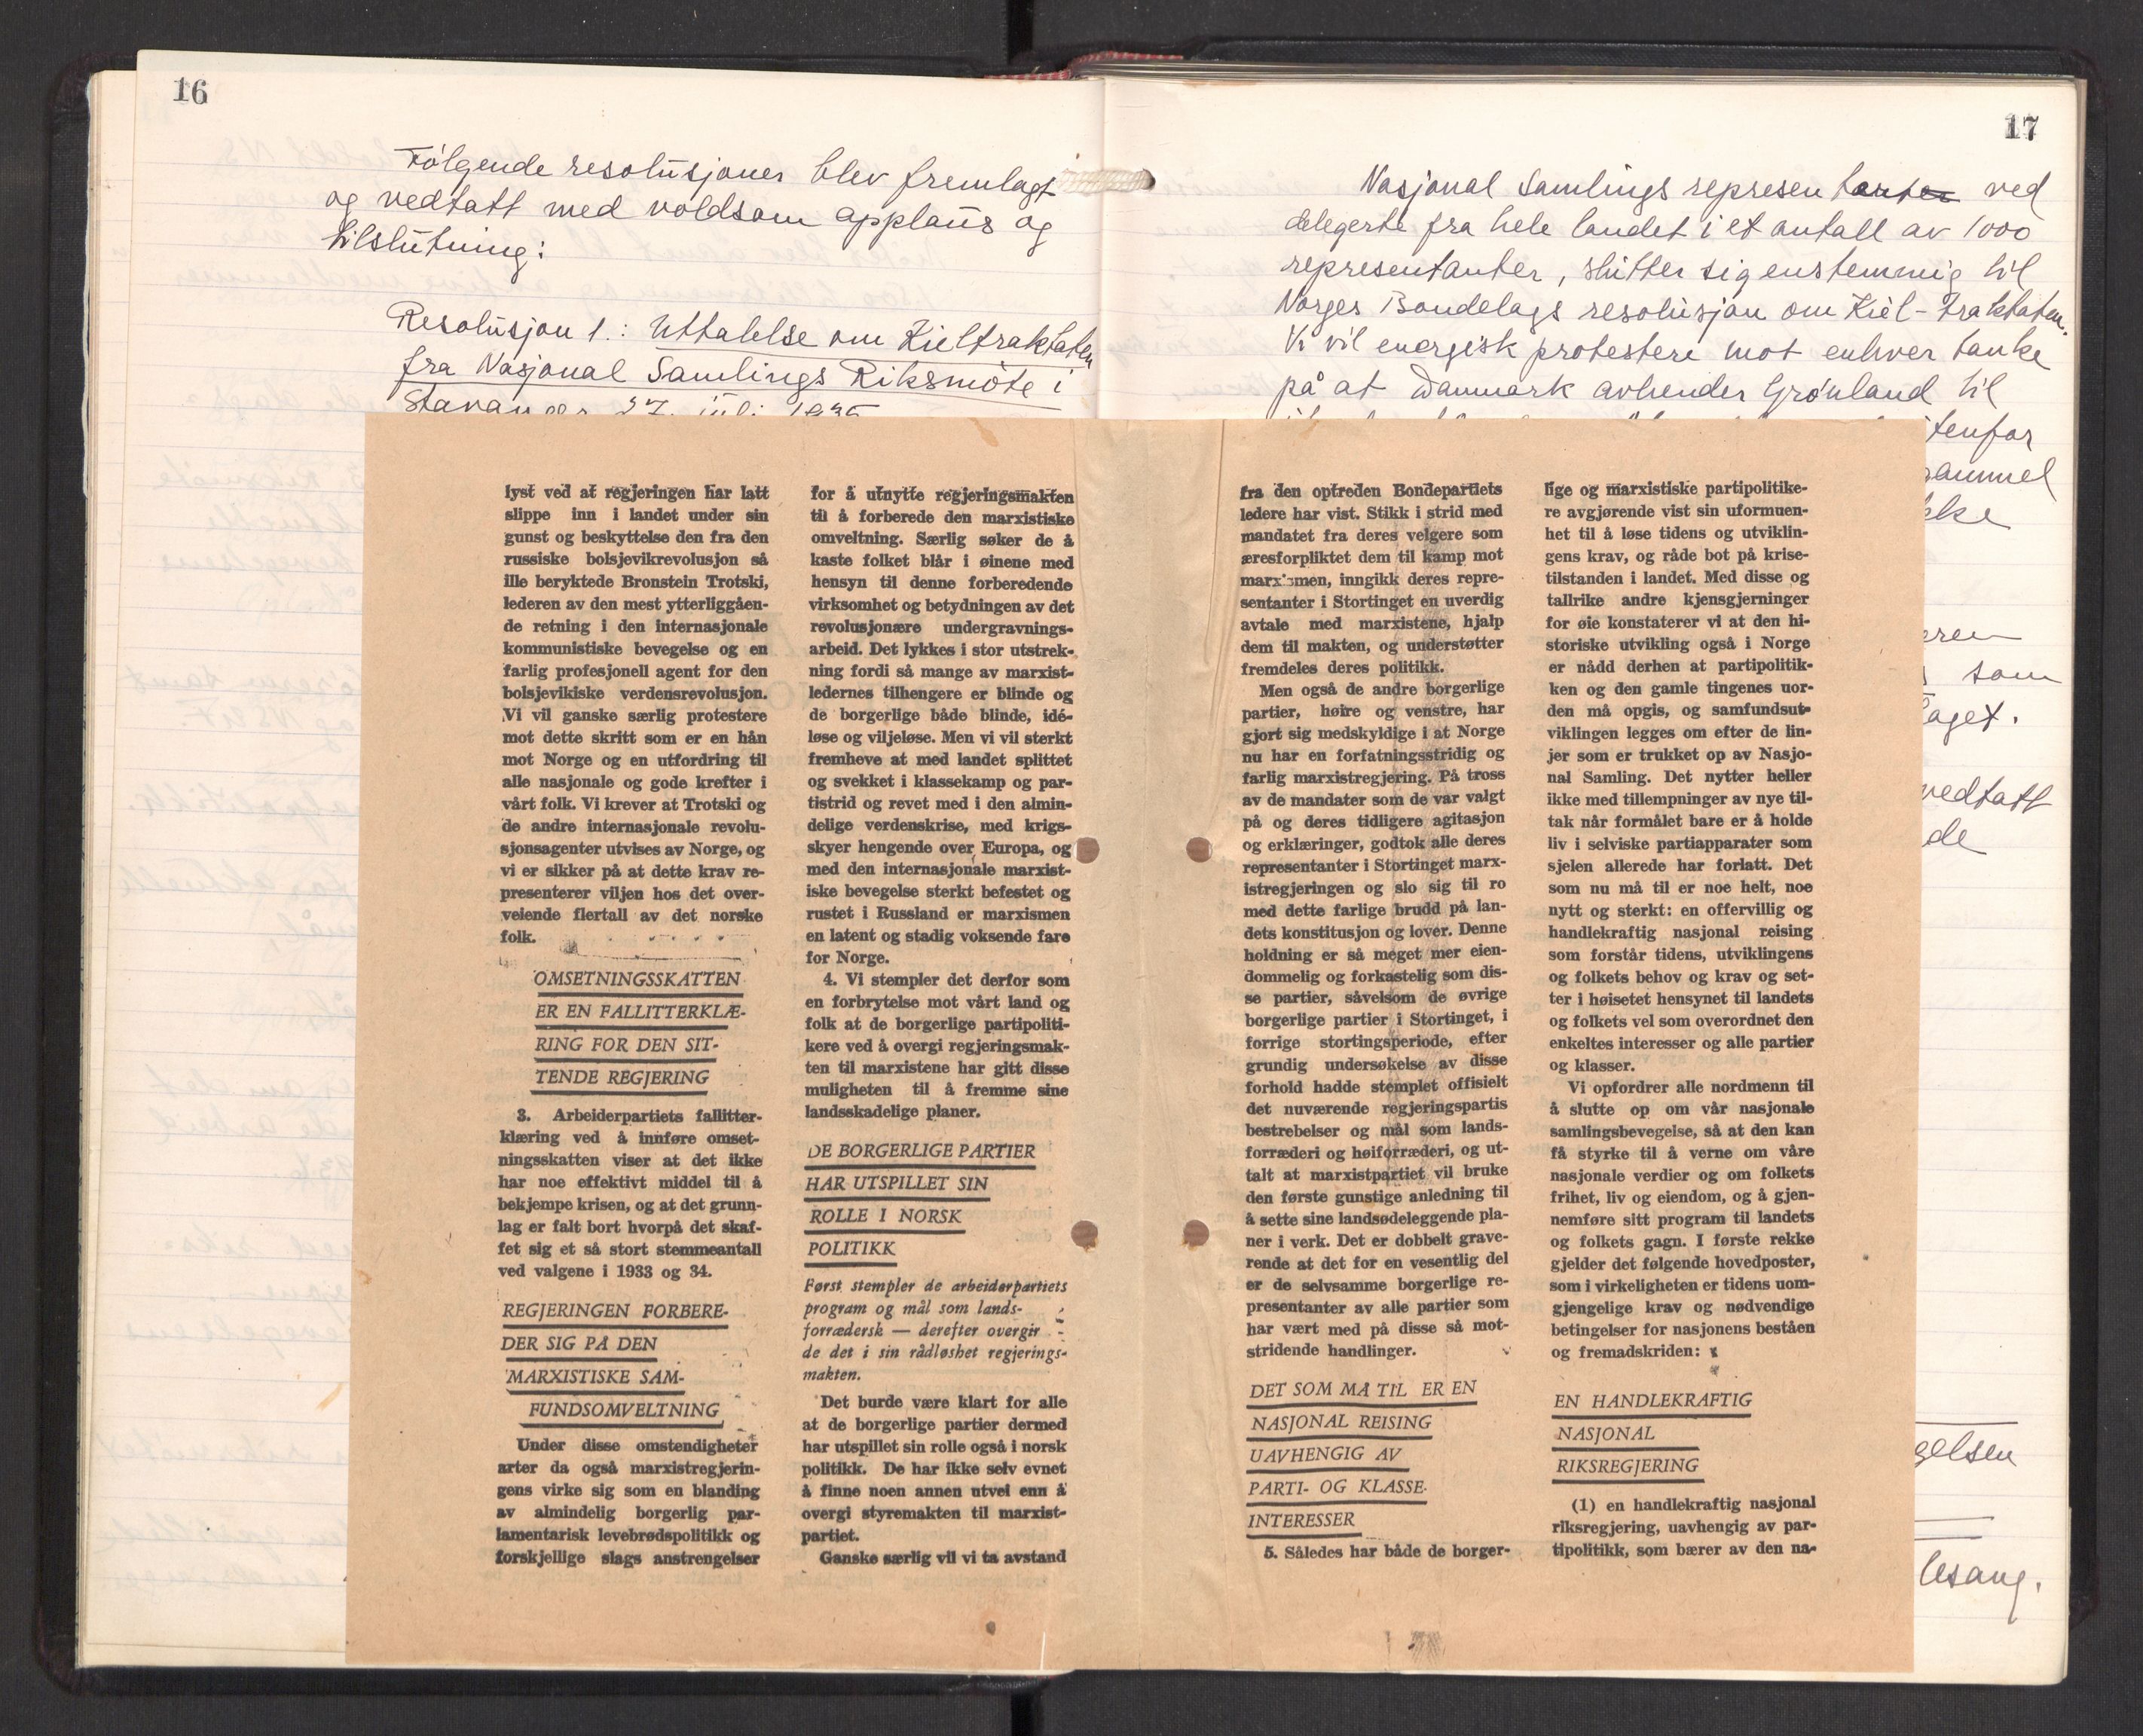 16
Følgende resolusjoner blev fremlagt
og vedtatt med voldsom applaus og
tilslutning:
Resolusjon 1.: Uttalelse om Kieltraktaten
fra Nasjonal Samlings Riksmöte i
Stavanger 27. juli 1935
lyst ved at regjeringen har latt
slippe inn i landet under sin
gunst og beskyttelse den fra den
russiske bolsjevikrevolusjon så
ille beryktede Bronstein Trotski,
lederen av den mest ytterliggåen-
de retning i den internasjonale
kommunistiske bevegelse og en
farlig profesjonell agent for den
bolsjevikiske verdensrevolusjon.
Vi vil ganske særlig protestere
mot dette skritt som er en hån
mot Norge og en utfordring til
alle nasjonale og gode krefter i
vårt folk. Vi krever at Trotski og
de andre internasjonale revolu-
sjonsagenter utvises av Norge, og
vi er sikker på at dette krav re-
presenterer viljen hos det over-
veiende flertall av det norske
folk.
OMSETNINGSSKATTEN
ER EN FALLITTERKLÆ-
RING FOR DEN SIT-
TENDE REGJERING
3. Arbeiderpartiets fallitter-
klæring ved å innføre omset-
ningsskatten viser at det ikke
har noe effektivt middel til å
bekjempe krisen, og at det grunn-
lag er falt bort hvorpå det skaf-
fet sig et så stort stemmeantall
ved valgene i 1933 og 34.
REGJERINGEN FORBERE-
DER SIG PÅ DEN
MARXISTISKE SAM-
FUNDSOMVELTNING
Under disse omstendigheter
arter da også marxistregjerin-
gens virke sig som en blanding
av almindelig borgerlig par-
lamentarisk levebrødspolitikk og
forskjellige slags anstrengelser
for å utnytte regjeringsmakten
til å forberede den marxistiske
omveltning. Særlig søker de å
kaste folket blår i øinene med
hensyn til denne forberedende
virksomhet og betydningen av det
revolusjonære undergravnings-
arbeid. Det lykkes i stor utstrek-
ning fordi så mange av marxist-
ledernes tilhengere er blinde og
de borgerlige både blinde, idé-
løse og viljeløse. Men vi vil sterkt
fremheve at med landet splittet
og svekket i klassekamp og par-
tistrid og revet med i den almin-
delige verdenskrise, med krigs-
skyer hengende over Europa, og
med den internasjonale marxist-
iske bevegelse sterkt befestet og
rustet i Russland er marxismen
en latent og stadig voksende fare
for Norge.
4. Vi stempler det derfor som
en forbrytelse mot vårt land og
folk at de borgerlige partipoliti-
kere ved å overgi regjeringsmak-
ten til marxistene har gitt disse
muligheten til å fremme sine
landsskadelige planer.
DE BORGERLIGE PARTIER
HAR UTSPILLET SIN
ROLLE I NORSK
POLITIKK
Først stempler de arbeiderpartiets
program og mål som lands-
forrædersk — derefter overgir
de det i sin rådløshet regjerings-
makten.
Det burde være klart for alle
at de borgerlige partier dermed
har utspillet sin rolle også i norsk
politikk. De har ikke selv evnet
å finne noen annen utvei enn å
overgi styremakten til marxist-
partiet.
Ganske særlig vil vi ta avstand
17
Nasjonal Samlings representanter ved
delegerte fra hele landet i et antall av 1000
representanter, slutter sig enstemmig til
Norges Bondelags resolusjon om Kiel-Traktaten.
Vi vil energisk protestere mot enhver tanke
på at Danmark avhender Grønland til
tenfor
gammel
ikke
eren
som
taget.
vedtatt
de
gelsen
lesang.
fra den optreden Bondepartiets
ledere har vist. Stikk i strid med
mandatet fra deres velgere som
æresforpliktet dem til kamp mot
marxismen, inngikk deres repre-
sentanter i Stortinget en uverdig
avtale med marxistene, hjalp
dem til makten, og understøtter
fremdeles deres politikk.
Men også de andre borgerlige
partier, høire og venstre, har
gjort sig medskyldige i at Norge
nu har en forfatningsstridig og
farlig marxistregjering. På tross
av de mandater som de var valgt
på og deres tidligere agitasjon
og erklæringer, godtok alle deres
representanter i Stortinget marx-
istregjeringen og slo sig til ro
med dette farlige brudd på lan-
dets konstitusjon og lover. Denne
holdning er så meget mer eien-
dommelig og forkastelig som dis-
se partier, såvelsom de øvrige
borgerlige partier i Stortinget, i
forrige stortingsperiode, efter
grundig undersøkelse av disse
forhold hadde stemplet offisielt
det nuværende regjeringspartis
bestrebelser og mål som lands-
forræderi og høiforræderi, og ut-
talt at marxistpartiet vil bruke
den første gunstige anledning til
å sette sine landsødeleggende pla-
ner i verk. Det er dobbelt grave-
rende at det for en vesentlig del
er de selvsamme borgerlige re-
presentanter av alle partier som
har vært med på disse så mot-
stridende handlinger.
DET SOM MÅ TIL ER EN
NASJONAL REISING
UAVHENGIG AV
PARTI- OG KLASSE-
INTERESSER
5. Således har både de borger-
lige og marxistiske partipolitike-
re avgjørende vist sin uformuen-
het til å løse tidens og utviklin-
gens krav, og råde bot på krise-
tilstanden i landet. Med disse og
tallrike andre kjensgjerninger
for øie konstaterer vi at den hi-
storiske utvikling også i Norge
er nådd derhen at partipolitik-
ken og den gamle tingenes uor-
den må opgis, og samfundsut-
viklingen legges om efter de lin-
jer som er trukket op av Nasjo-
nal Samling. Det nytter heller
ikke med tillempninger av nye til-
tak når formålet bare er å holde
liv i selviske partiapparater som
sjelen allerede har forlatt. Det
som nu må til er noe helt, noe
nytt og sterkt: en offervillig og
handlekraftig nasjonal reising
som forstår tidens, utviklingens
og folkets behov og krav og set-
ter i høisetet hensynet til landets
og folkets vel som overordnet den
enkeltes interesser og alle partier
og klasser.
Vi opfordrer alle nordmenn til
å slutte op om vår nasjonale
samlingsbevegelse, så at den kan
få styrke til å verne om våre
nasjonale verdier og om folkets
frihet, liv og eiendom, og å gjen-
nemføre sitt program til landets
og folkets gagn. I første rekke
gjelder det følgende hovedposter,
som i virkeligheten er tidens uom-
gjengelige krav og nødvendige
betingelser for nasjonens beståen
og fremadskriden:
EN HANDLEKRAFTIG
NASJONAL
RIKSREGJERING
(1) en handlekraftig nasjonal
riksregjering, uavhengig av par-
tipolitikk, som bærer av den na-